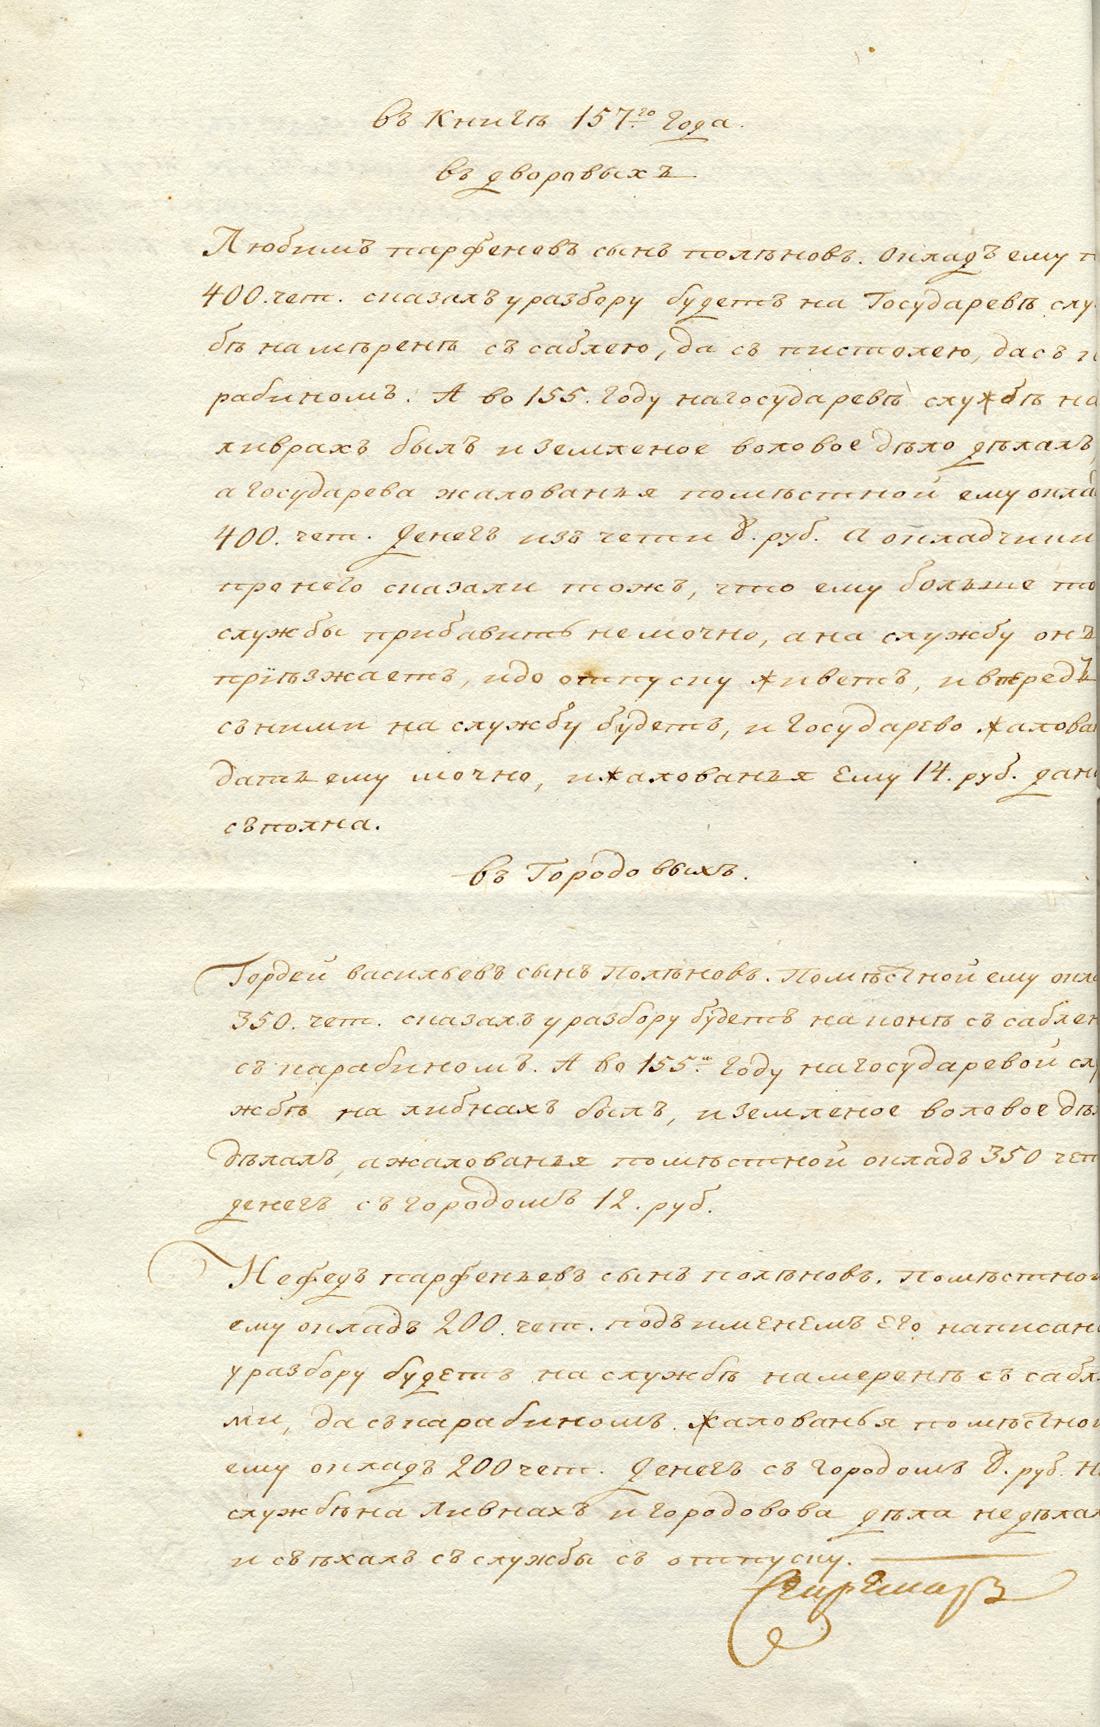 въ книгѣ 157го года.
въ дворовыхъ
Любимъ парфеновъ сынъ полѣновъ. окладъ ему п
400. чет. сказалъ у разбору будетъ на Государевѣ слу
бѣ на мѣренѣ съ саблею, да съ пистолею, да съ к
рабиномъ. А во 155. году на государевѣ службѣ на
ливрахъ былъ и земленое воловое дѣло дѣлалъ,
а государева жалованья помѣстной ему окла
400. чет. денегъ изъ чети 8. руб. А окладчики
про него сказали тожъ, что ему больше то
службы прибавить не мочно, а на службу онъ
прїѣзжаетъ, и до отпуску живетъ, и впредъ
съ ними на службу будетъ, и государево жалова
дать ему мочно, и жалованья ему 14. руб. дан
съполна.
въ Городовыхъ.
Гордей васильевъ сынъ полѣновъ. Помѣстной ему окла
350. чет. сказалъ у разбору будетъ на конѣ съ саблею
съ карабиномъ. А во 155м году на государевой слу
жбѣ на либнахъ былъ, и земленое воловое дѣл
дѣлалъ, а жалованья помѣстной окладъ 350 чет
денегъ съ городомъ 12. руб.
Нефедъ парфеньевъ сынъ полѣновъ. помѣстной
ему окладъ 200. чет. подъ именемъ его написано
у разбору будетъ на службѣ на меренѣ съ сабля
ми, да съ карабиномъ. жалованья помѣстной
ему окладъ 200 чет. денегъ съ городомъ 8. руб. на
службѣ на Ливнахъ и городовова дѣла не дѣлал
и съѣхалъ съ службы съ отпуску.
Секретарь